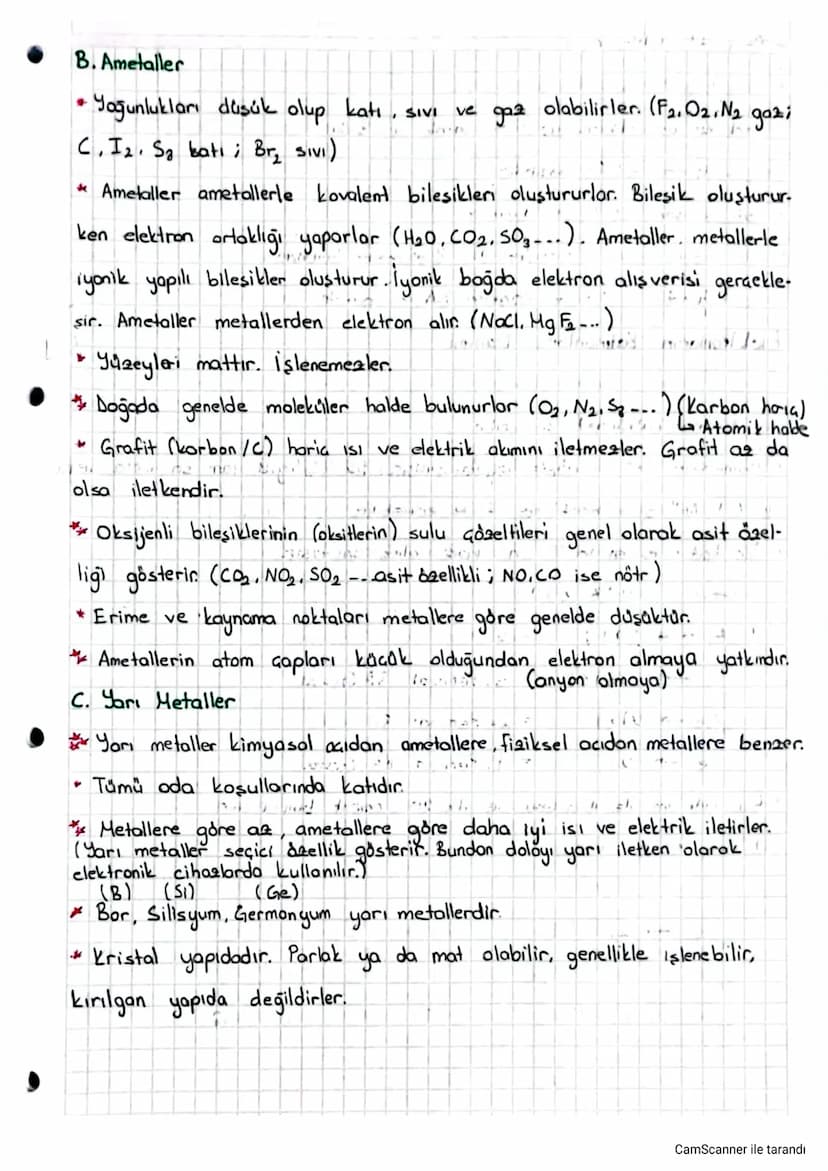 B. Ametaller
* Yoğunlukları düşük olup katı, sıvı ve gaz olabilirler. (F₂, O₂, N₂ gaz;
C, I₂, S₈ katı ; Br₂ sıvı)
* Ametaller ametallerle kovalent bileşikleri oluştururlar. Bileşik oluşturur-
ken elektron ortaklığı yaparlar (H₂O, CO₂, SO₃---). Ametaller, metallerle
iyonik yapılı bileşikler oluşturur. İyonik bağda elektron alışverişi gerçekle-
şir. Ametaller metallerden elektron alır. (NaCl, MgF₂---)
* Yüzeyleri mattır. İşlenemezler.
* Doğada genelde moleküler halde bulunurlar (O₂, N₂, S₈---) (Karbon hariç)
↳ Atomik halde
* Grafit (karbon/C) hariç ısı ve elektrik akımını iletmezler. Grafit az da
olsa iletkendir.
* Oksijenli bileşiklerinin (oksitlerin) sulu çözeltileri genel olarak asit özel-
liği gösterir. (CO₂, NO₂, SO₂ -- asit özellikli ; NO, CO ise nötr)
* Erime ve kaynama noktaları metallere göre genelde düşüktür.
* Ametallerin atom çapları küçük olduğundan elektron almaya yatkındır.
(anyon olmaya)
C. Yarı Metaller
* Yarı metaller kimyasal açıdan ametallere, fiziksel açıdan metallere benzer.
* Tümü oda koşullarında katıdır.
* Metallere göre az, ametallere göre daha iyi ısı ve elektrik iletirler.
(Yarı metaller seçici özellik gösterir. Bundan dolayı yarı iletken olarak
elektronik cihazlarda kullanılır.)
(B) (Si) (Ge)
* Bor, Silisyum, Germanyum yarı metallerdir.
* Kristal yapıdadır. Parlak ya da mat olabilir, genellikle işlenebilir,
kırılgan yapıda değildirler.
CamScanner ile tarandı